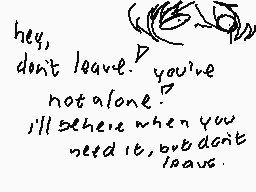 hey,
don't leave!
you're
not alone!
i'll be here when you
need it, but don't
leave.